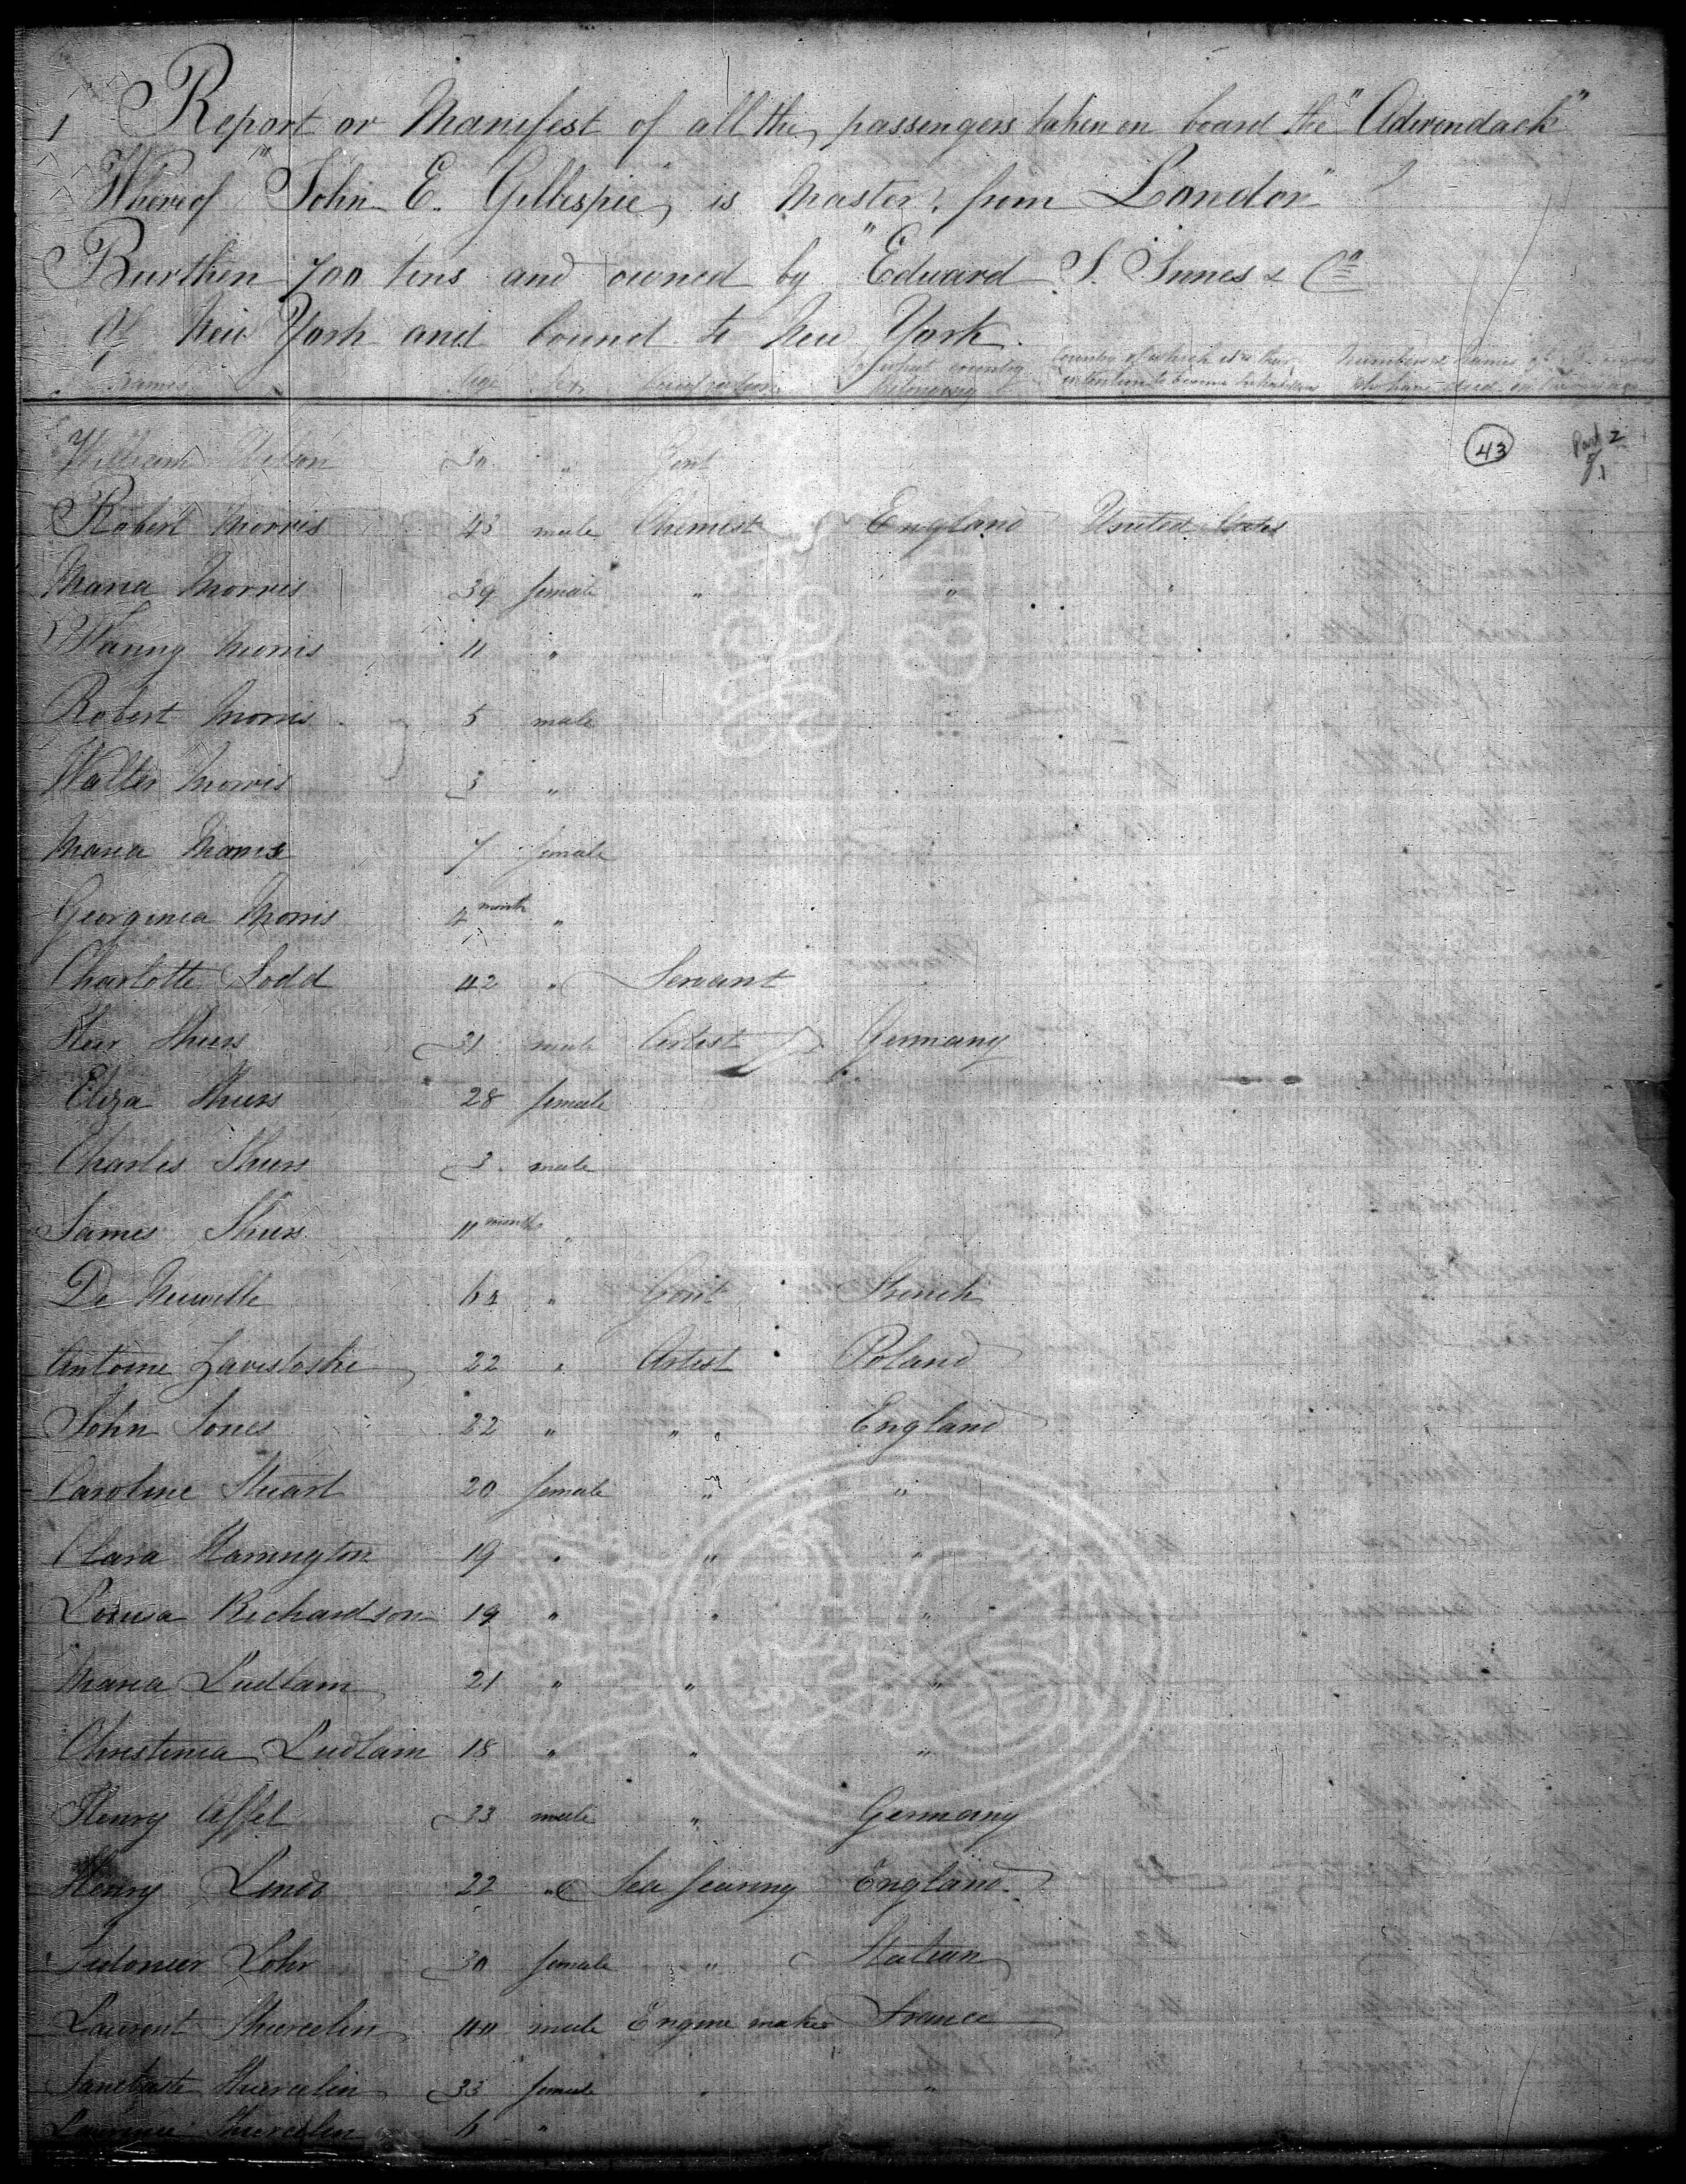 1 Report or Manifest of all the passengers taken on board the "Aderondack"
Whereof "John E. Gillespie" is Master, from London"
Burthen 700 tons and owned by "Edward S. Innes & Co
Of New York and bound to New York.
Names Age Sex Occupation To what country belonging Country of which it is their intention to become inhabitants Number & Names of Passengers who have died on the voyage
William Wilson 30 " Gent
43 Part 2
Robert Morris 43 male Chemist England United States
Maria Morris 39 female " " "
Fanny Morris 11 "
Robert Morris 5 male
Walter Morris 3 "
Maria Morris 7 female
Georginia Morris 4 month "
Charlotte Dodd 42 " Servant
31 male Artist Germany
Eliza 28 female
Charles 3 male
James 11 months "
De Neuville 64 " Gent French
Antoine Zavistoski 22 " Artist Poland
John Jones 22 " " England
Caroline Stuart 20 female " "
Clara Harrington 19 " " "
Louisa Richardson 19 " " "
Maria Ludlam 21 " " "
Christinia Ludlam 18 " " "
Henry Appel 33 male " Germany
Henry Lindo 22 " England
Lohr 30 female " Italian
Laurent 40 male Engine maker France
33 female " "
6 "